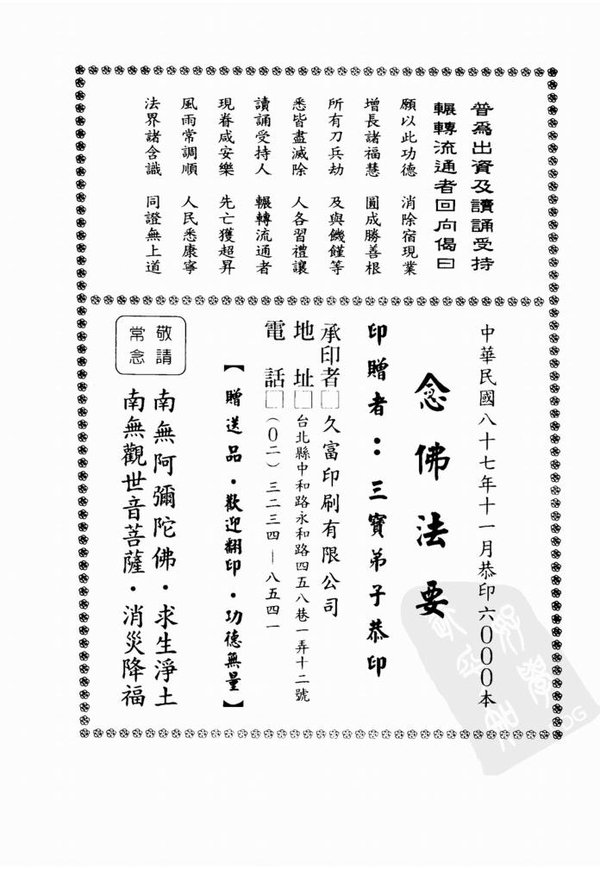 普為出資及讀誦受持
輾轉流通者回向偈曰
願以此功德　消除宿現業
增長諸福慧　圓成勝善根
所有刀兵劫　及與饑饉等
悉皆盡滅除　人各習禮讓
讀誦受持人　輾轉流通者
現眷咸安樂　先亡獲超昇
風雨常調順　人民悉康寧
法界諸含識　同證無上道
中華民國八十七年十一月恭印六000本
念佛法要
印贈者：三寶弟子恭印
承印者□久富印刷有限公司
地　址□台北縣中和路永和路四五八巷一弄十二號
電　話□(0二)三二三四－八五四一
【贈送品・歡迎翻印・功德無量】
敬請
常念
南無阿彌陀佛・求生淨土
南無觀世音菩薩・消災降福